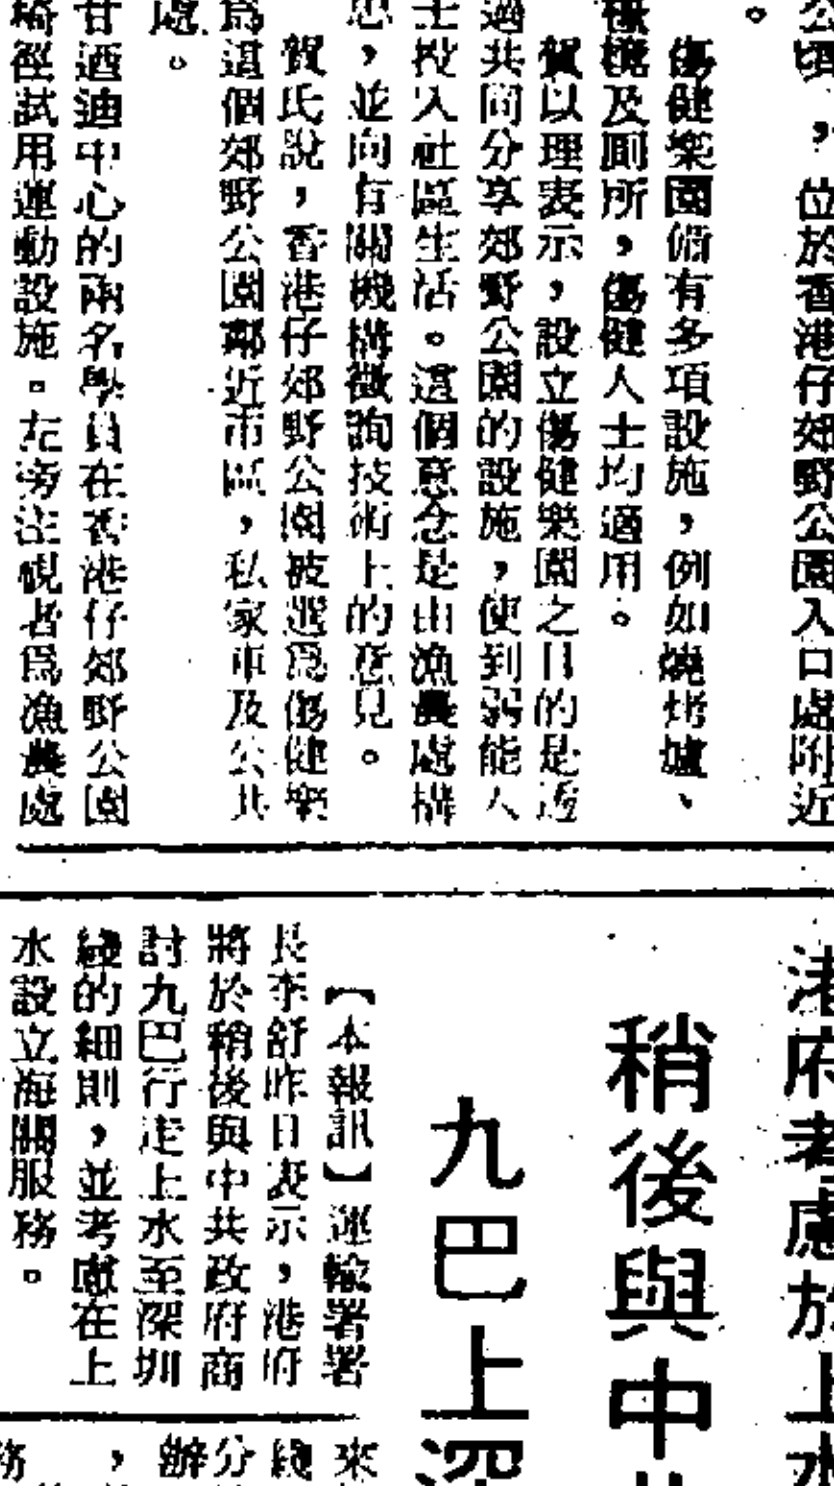 公頃，位於香港仔郊野公園入口處附近
。
傷健樂園備有多項設施，例如燒烤爐、
及厠所，傷健人士均適用。
賀以理表示，設立傷健樂園之目的是透
過共同分享郊野公園的設施，使到弱能人
士投入社區生活。這個意念是由漁農處構
思，並向有關機構徵詢技術上的意見。
賀氏說，香港仔郊野公園被選爲傷健樂
爲這個郊野公園鄰近市區，私家車及公共
處。
甘迺迪中心的兩名學員在香港仔郊野公園
椅徑試用運動設施。左旁注視者爲漁農處
港府考慮於上水
稍後與中共
九巴上深
【本報訊】運輸署署
長李舒昨日表示，港府
將於稍後與中共政府商
討九巴行走上水至深圳
綫的細則，並考慮在上
水設立海關服務。
來
綫
分
辦
，
務